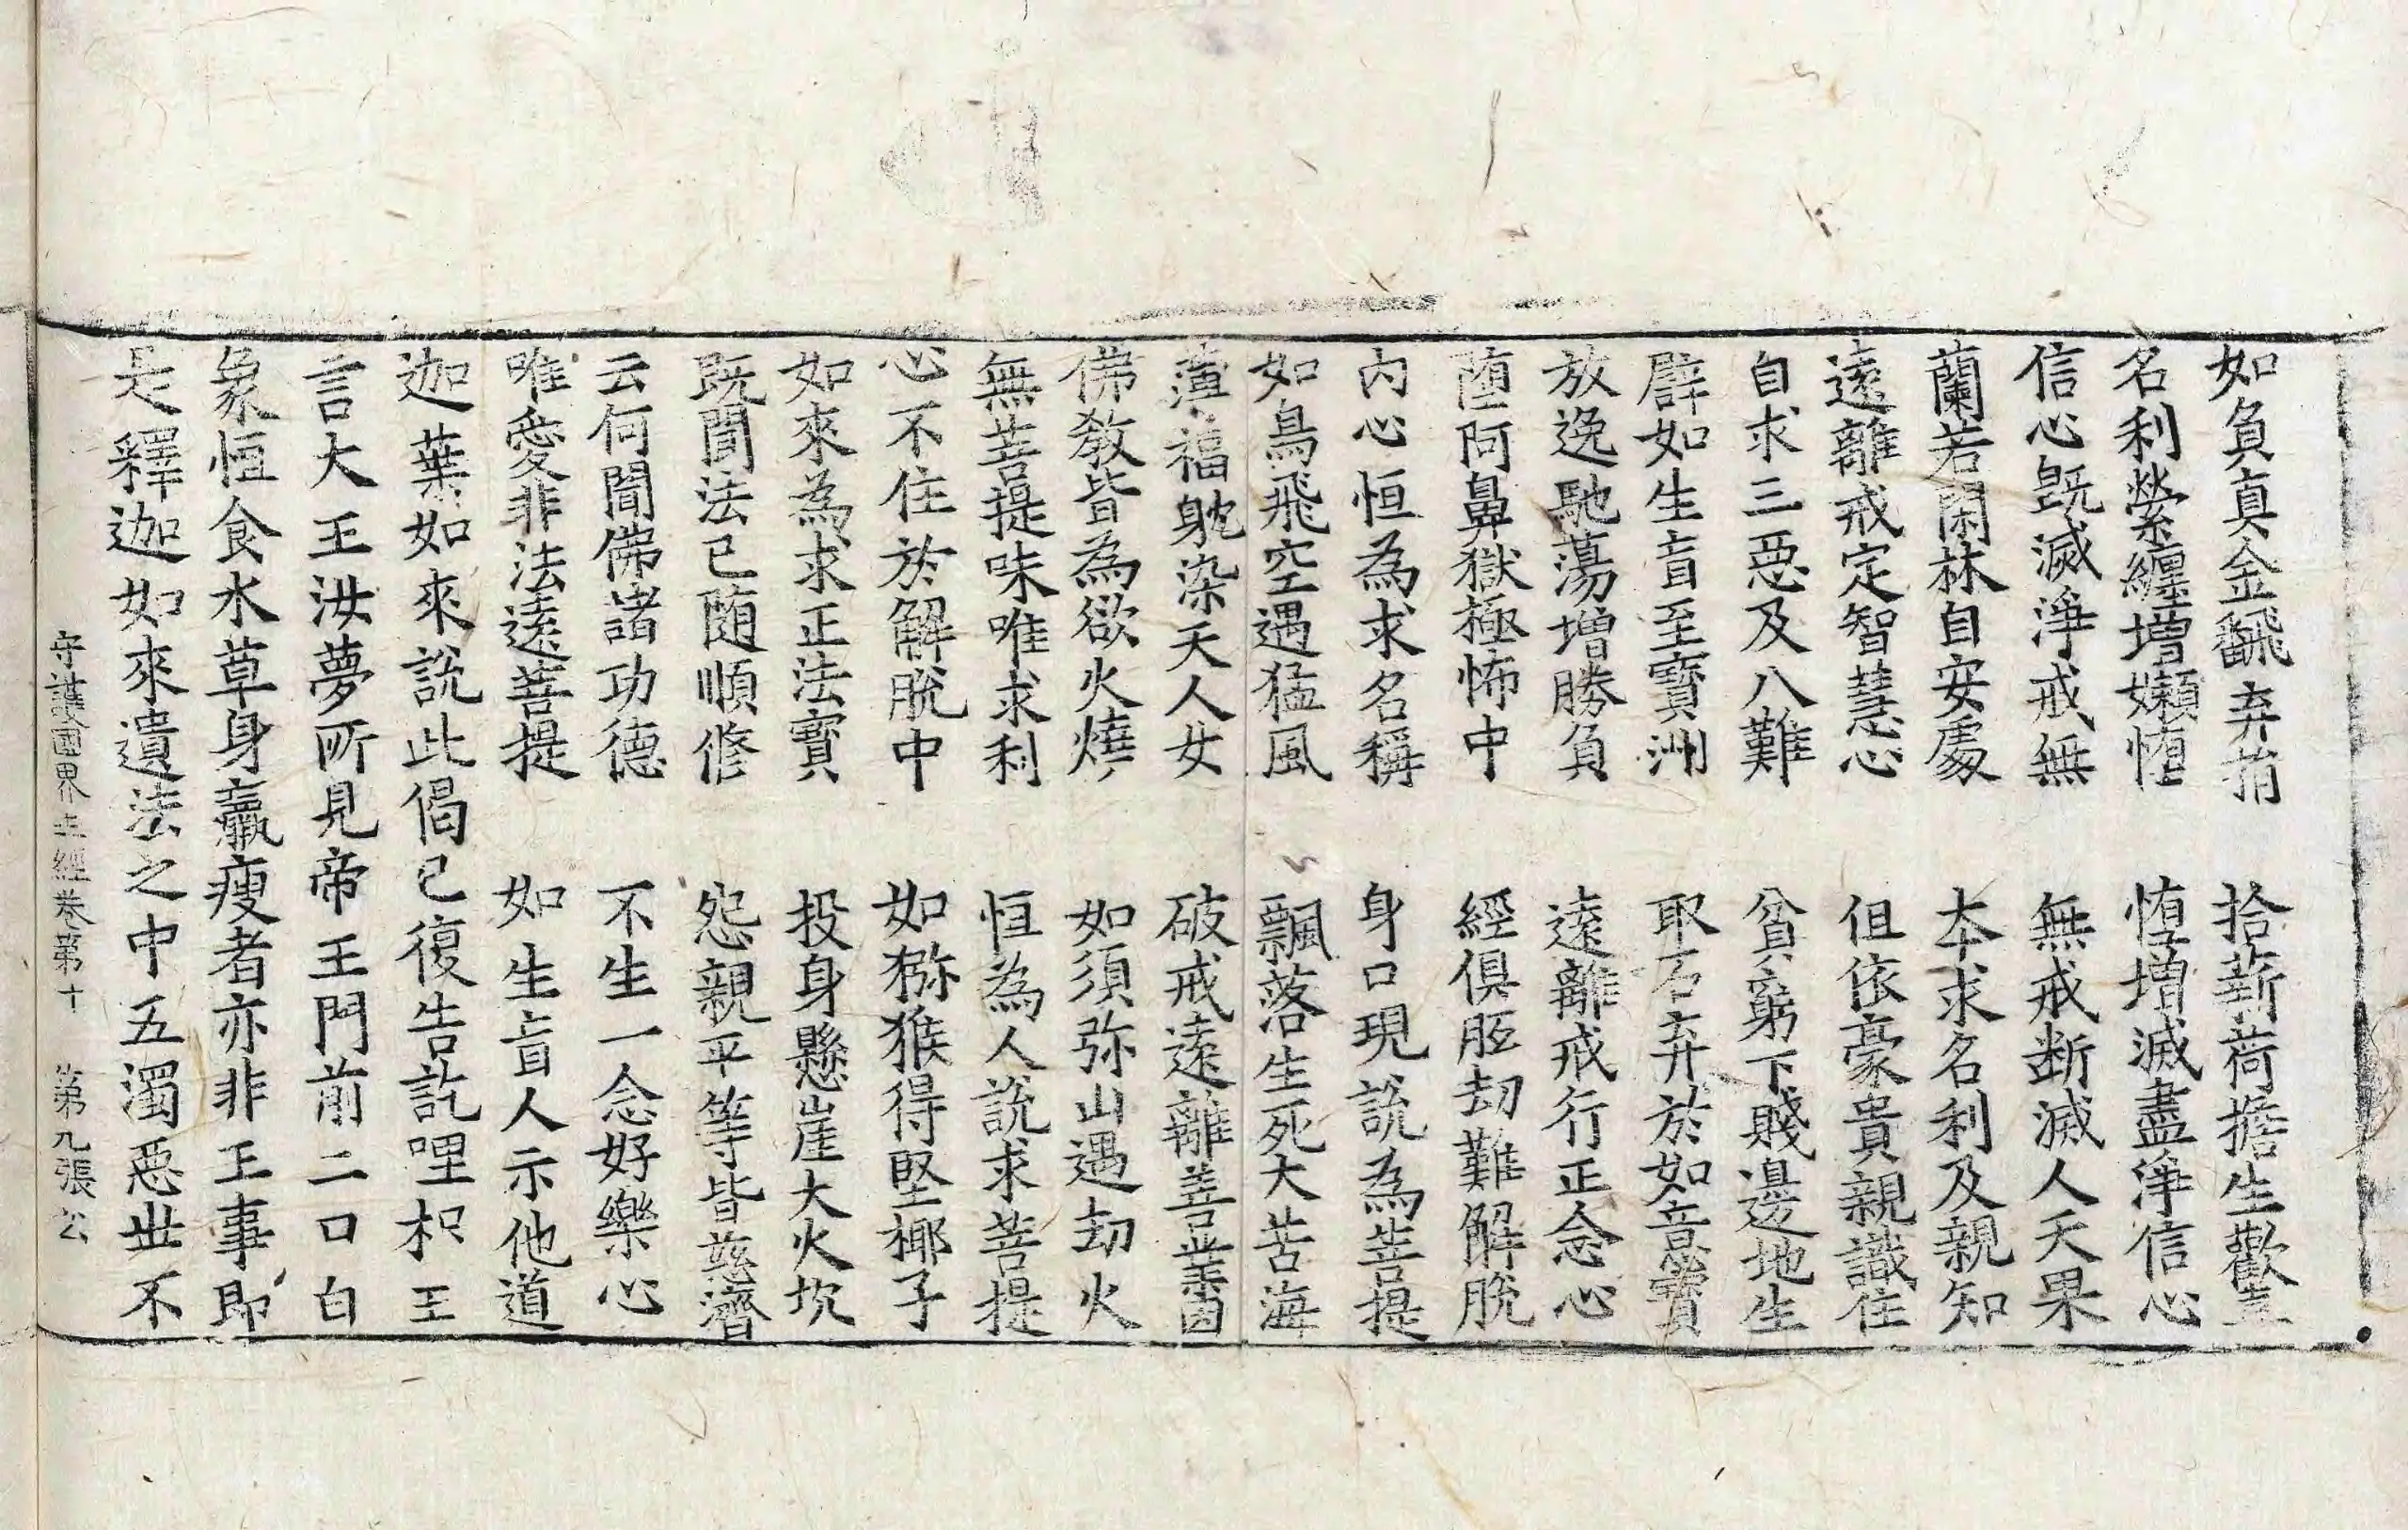 如負真金飜弃捐　拾薪荷擔生歡喜
名利縈纏增嬾惰　惰增滅盡淨信心
信心旣滅淨戒無　無戒斷滅人天果
蘭若閑林自安處　本求名利及親知
遠離戒定智慧心　但依豪貴親識住
自求三惡及八難　貧窮下賤邊地生
譬如生盲至寶洲　取石弃於如意寶
放逸馳蕩增勝負　遠離戒行正念心
墮阿鼻獄極怖中　經俱胝劫難解脫
內心恒為求名稱　身口現說為菩提
如鳥飛空遇猛風　飄落生死大苦海
薄福躭染天人女　破戒遠離善業因
佛敎皆為欲火燒　如須弥山遇劫火
無菩提味唯求利　恒為人說求菩提
心不住於解脫中　如獼猴得堅椰子
如來為求正法寶　投身懸崖大火坎
既聞法已隨順修　怨親平等皆慈濟
云何聞佛諸功德　不生一念好樂心
唯愛非法遠菩提　如生盲人示他道
迦葉如來說此偈已復告訖哩枳王
言大王汝夢所見帝王門前二口白
象恒食水草身羸瘦者亦非王事即
是釋迦如來遺法之中五濁惡世不
守護國界主經卷第十　第九張 公